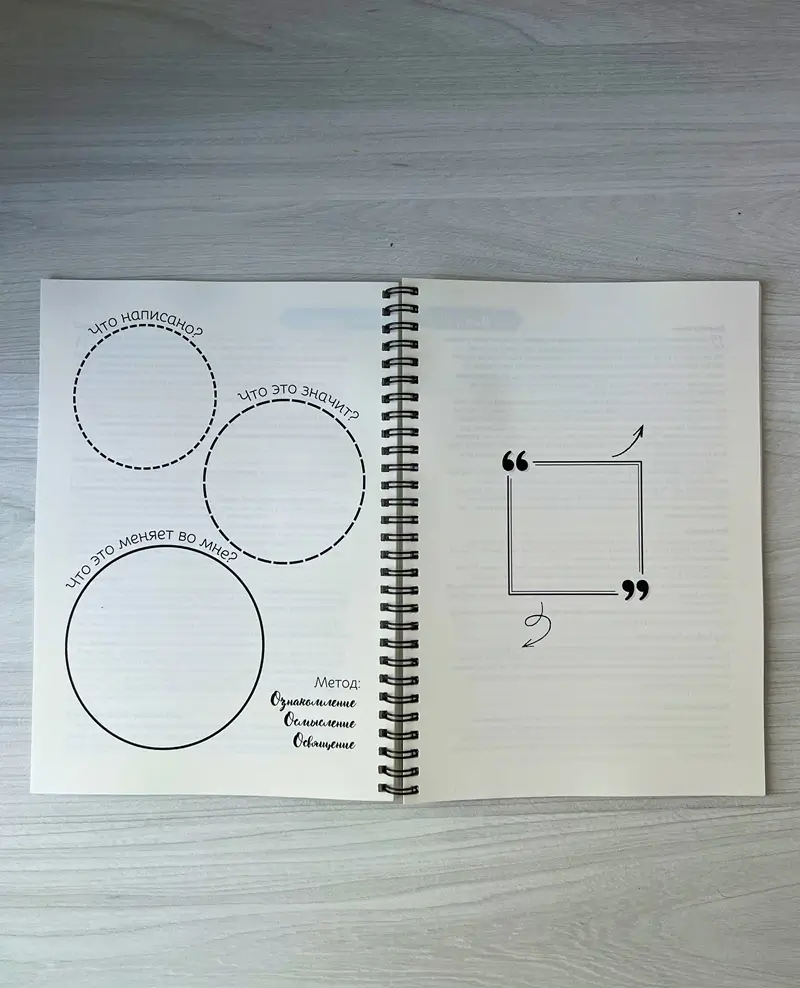 Что написано?
Что это значит?
Что это меняет во мне?
Метод:
Ознакомление
Осмысление
Освящение